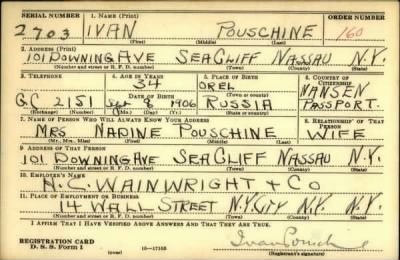 SERIAL NUMBER 1. NAME (Print) ORDER NUMBER
2703 IVAN POUSCHINE 160
(First) (Middle) (Last)
2. ADDRESS (Print)
101 DOWNING AVE SEA CLIFF NASSAU N.Y.
(Number and street or R. F. D. number) (Town) (County) (State)
3. TELEPHONE 4. AGE IN YEARS 5. PLACE OF BIRTH 6. COUNTRY OF CITIZENSHIP
34 OREL NANSEN
DATE OF BIRTH (Town or county)
G.C. 2151 Sept 8 1906 RUSSIA PASSPORT.
(Exchange) (Number) (Mo.) (Day) (Yr.) (State or country)
7. NAME OF PERSON WHO WILL ALWAYS KNOW YOUR ADDRESS 8. RELATIONSHIP OF THAT PERSON
MRS NADINE POUSCHINE WIFE
(Mr., Mrs., Miss) (First) (Middle) (Last)
9. ADDRESS OF THAT PERSON
101 DOWNING AVE SEA CLIFF NASSAU N.Y.
(Number and street or R. F. D. number) (Town) (County) (State)
10. EMPLOYER'S NAME
H.C. WAINWRIGHT + CO
11. PLACE OF EMPLOYMENT OR BUSINESS
14 WALL STREET N.Y. CITY N.Y. N.Y.
(Number and street or R. F. D. number) (Town) (County) (State)
I AFFIRM THAT I HAVE VERIFIED ABOVE ANSWERS AND THAT THEY ARE TRUE.
REGISTRATION CARD
D. S. S. Form 1 (over) 16—17105 (Registrant's signature)